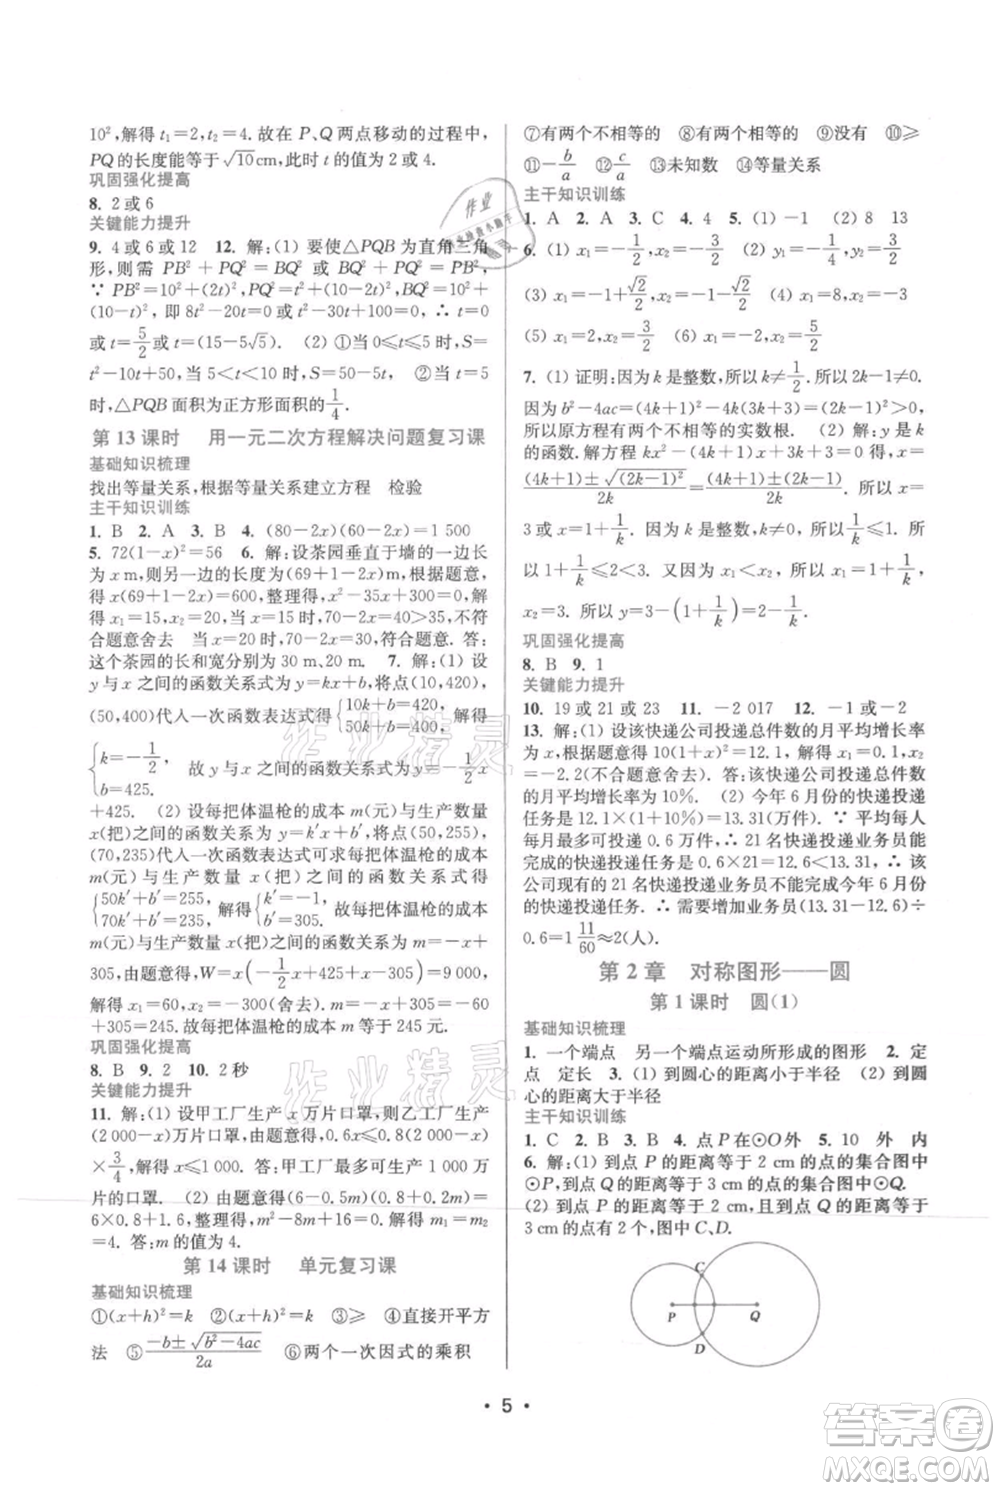 10²,解得 t₁=2,t₂=4.故在 P、Q 两点移动的过程中,
PQ 的长度能等于√10cm,此时 t 的值为 2 或 4.
巩固强化提高
8. 2 或 6
关键能力提升
9. 4 或 6 或 12 12. 解:(1) 要使△PQB 为直角三角
形,则需 PB²+PQ²=BQ² 或 PQ²+BQ²=PB².
∵ PB²=10²+(2t)²,PQ²=10²+t²,BQ²=10²+
(10-t)²,即 8t²-20t=0 或 2t²-30t+100=0,∴ t=0
或 t=5/2 或 t=(15-5√5). (2) ①当 0≤t≤5 时,S=
t²-10t+50,当 5<t<10 时,S=50-5t, ②当 t=5
时,△PQB 面积为正方形面积的1/4.
第 13 课时 用一元二次方程解决问题复习课
基础知识梳理
找出等量关系,根据等量关系建立方程 检验
主干知识训练
1. B 2. A 3. B 4. (80-2x)(60-2x)=1 500
5. 72(1-x)²=56 6. 解:设茶园垂直于墙的一边长
为 x m,则另一边的长度为(69+1-2x)m,根据题意,
得 x(69+1-2x)=600,整理,得 x²-35x+300=0,
解得 x₁=15,x₂=20,当 x=15 时,70-2x=40>35,不符
合题意舍去 当 x=20 时,70-2x=30,符合题意.答:
这个茶园的长和宽分别为 30 m、20 m. 7. 解:(1) 设
y 与 x 之间的函数关系式为 y=kx+b,把(10,420),
(50,400)代入一次函数表达式得{10k+b=420, 50k+b=400,解得
{k=-1/2, b=425. 故 y 与 x 之间的函数关系式为 y=-1/2x
+425. (2) 设每把体温枪的成本 m(元)与生产数量
x(把)之间的函数关系为 y=k′x+b′,将点(50,255),
(70,235)代入一次函数表达式可求每把体温枪的成本
{50k′+b′=255, 70k′+b′=235,解得{k′=-1, b′=305.故每把体温枪的成本
m(元)与生产数量 x(把)之间的函数关系式为 m=-x
+305,由题意得,W=x(-1/2x+425+x-305)=9 000,
解得 x₁=60,x₂=-300(舍去). 故 m=-x+305=-60
+305=245.故每把体温枪的成本 m 等于 245 元.
巩固强化提高
8. B 9. 2 10. 2 秒
关键能力提升
11. 解:(1) 设甲工厂生产 x 万片口罩,则乙工厂生产
(2 000-x)万片口罩,由题意得:0.6x≤0.8(2 000-x)
×3/4,解得 x≤1 000. 答:甲工厂最多可生产 1 000 万
片的口罩. (2) 由题意得(6-0.5m)(0.8+0.2m)=
6×0.8+1.6,整理得,m²-8m+16=0.解得 m₁=m₂=
4>3. 答:m 的值为 4.
第 14 课时 单元复习课
基础知识梳理
①(x+h)²=k ②(x+h)²=k ③≥ ④直接开平方
法 ⑤(-b±√(b²-4ac))/2a ⑥两个一次因式的乘积
⑦有两个不相等的 ⑧有两个相等的 ⑨没有 ⑩≥
⑪-b/a ⑫c/a ⑬未知数 ⑭等量关系
主干知识训练
1. A 2. A 3. C 4. 4 5. (1) -1 (2) 8 13
6. (1) x₁=-1/2,x₂=3/2 (2) y₁=-1/4,y₂=1
(3) x₁=-1+√2/2,x₂=-1-√2/2 (4) x₁=8,x₂=-3
(5) x₁=-2,x₂=3/2 (6) x₁=-2,x₂=1/2
7. (1) 证明:因为 k 是整数,所以 k≠1/2.所以 2k-1≠0.
因为 b²-4ac=(4k+1)²-4k(3k+3)=(2k-1)²>0,
所以原方程有两个不相等的实数根. (2) 解:y 是 k
的函数.解方程 kx²-(4k+1)x+3k+3=0,得 x=
((4k+1)±√(2k-1)²)/2k=((4k+1)±(2k-1))/2k. 所以 x=
3 或 x=1+1/k. 因为 k 是整数,所以1/k≤1. 所
以 1+1/k≤2<3. 又因为 x₁<x₂,所以 x₁=1+1/k,
x₂=3. 所以 y=3-(1+1/k)=2-1/k.
巩固强化提高
8. B 9. 1
关键能力提升
10. 19 或 21 或 23 11. -2 017 12. -1 或-2
13. 解:(1) 设该快递公司投递总件数的月平均增长率
为 x,根据题意得 10(1+x)²=12.1,解得 x₁=0.1,x₂
=-2.2(不符合题意). 答:该快递公司投递总件数
的月平均增长率为 10%. (2) 今年 6 月份的快递投递
任务是 12.1×(1+10%)=13.31(万件).∵ 平均每人
每月最多可投递 0.6 万件,∴ 21 名快递投递业务员能
完成的快递投递任务是 0.6×21=12.6<13.31,∴ 该
公司现有的 21 名快递投递业务员不能完成今年 6 月份
的快递投递任务.∴ 需要增加业务员(13.31-12.6)÷
0.6=1 11/60≈2(人).
第 2 章 对称图形——圆
第 1 课时 圆(1)
基础知识梳理
1. 一个端点 另一个端点运动所形成的图形 2. 定
点 定长 3. (1) 到圆心的距离小于半径 (2) 到圆心
的距离大于半径
主干知识训练
1. C 2. B 3. B 4. 点 P 在⊙O 外 5. 10 外 内
6. 解:(1) 到点 P 的距离等于 2 cm 的点的集合图中
⊙P,到点 Q 的距离等于 3 cm 的点的集合图中⊙Q.
(2) 到点 P 的距离等于 2 cm,且到点 Q 的距离等于
3 cm 的点有 2 个,图中 C、D.
C
P Q
D
• 5 •
作业精灵
作业精灵
答案圈
MXQE.COM